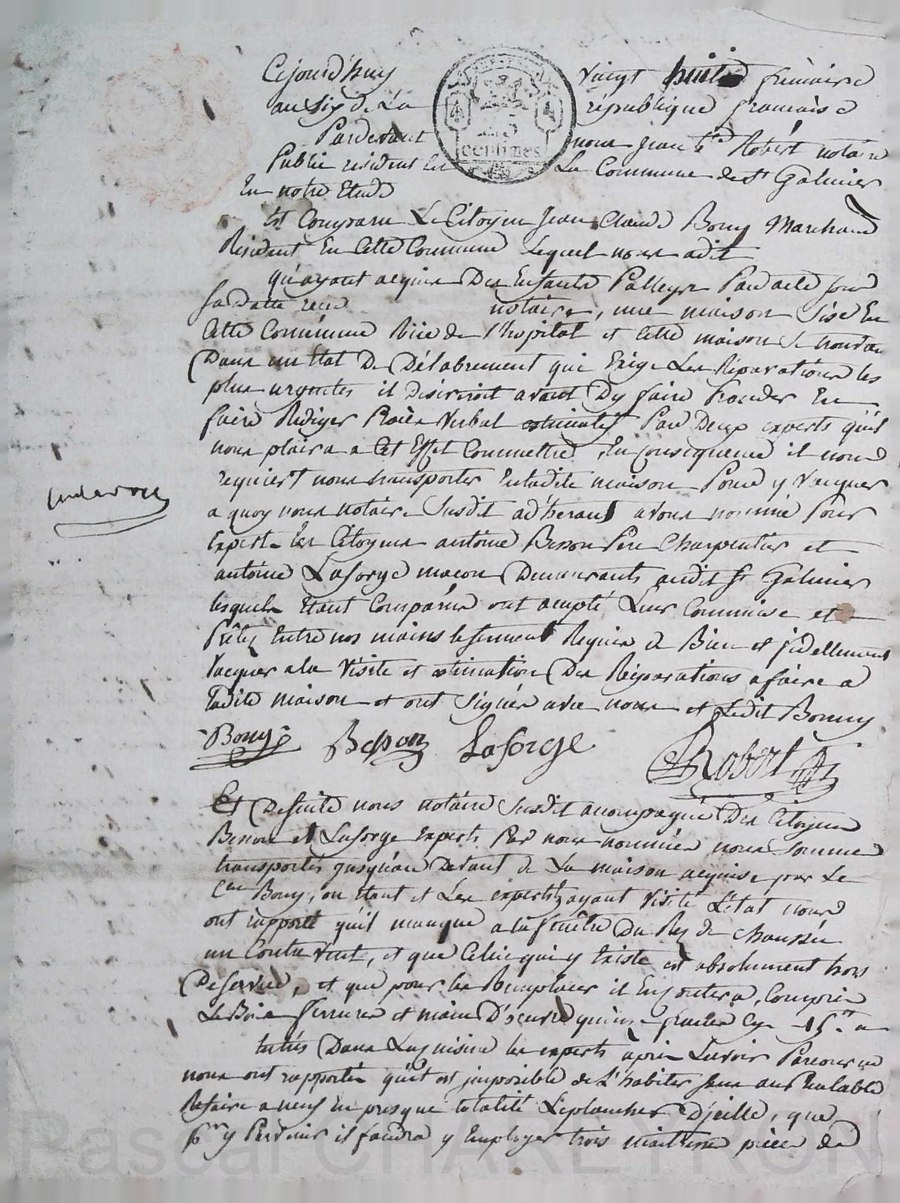 Cejourd'huy vingt huit frimaire
an Six de La république francaise
Pardevant nous jean Robert notaire
Public résident En La Commune de St Galmier
En notre Etude
Est Comparu Le Citoyen Jean Claude Bony Marchand
Résident En Cette Commune Lequel nous adit
qu'ayant acquis Des Enfants Palleys Par acte sous
Sa datte recu notaire, une maison sise En
Cette Commune Rüe de L'hospital et Cette maison Se trouvant
Dans un Etat De Délabrement qui Exige Les Réparations les
plus urgentes il désireroit avant Dy faire Proceder En
faire Rédiger Procès Verbal estimatif Par Deux experts qu'il
nous plaira a Cet Effet Commettre, En Conséquence il nous
requiert nous transporter En ladite maison Pour y Vacquer
a quoy nous notaire Susdit adhérant avons nommé Pour
Expert Les Citoyens antoine Besson Père Charpentier et
antoine Laforge macon Demeurants audit St Galmier
lesquels Etant Comparus ont accepté Leur Commise et
Prêté Entre nos mains le serment Requis de Bien et fidellement
Vacquer a la Visite et estimation Des Réparations a faire a
Ladite maison et ont Signés avec nous et Ledit Bonny
Bony Besson Laforge Robert
Et De suite nous notaire Susdit accompagné Des Citoyens
Besson et Laforge Experts Par nous nommés nous Sommes
transportés jusqu'au Devant de La maison acquise par Le
Cen Bony, ou Etant et Les experts ayant Visité L'état nous
ont rapporté qu'il manque a la fenêtre Du Rez de Chaussée
un Contre Vent, et que Celui qui y Existe est absolument hors
De Service, et que pour les Remplacer il En coutera, Compris
Le Bois ferrures et main D'œuvre quinze francs Cy 15 "
Entrés Dans La Cuisine les experts après L'avoir Parcourue
nous ont rapporté qu'il est impossible de L'habiter Sans au Préalable
Refaire a neuf En presque totalité Le plancher D'icelle, que
pr y Parvenir il faudra y Employer trois maitresse pièce de
Pascal CHAREYRON
25
centimes